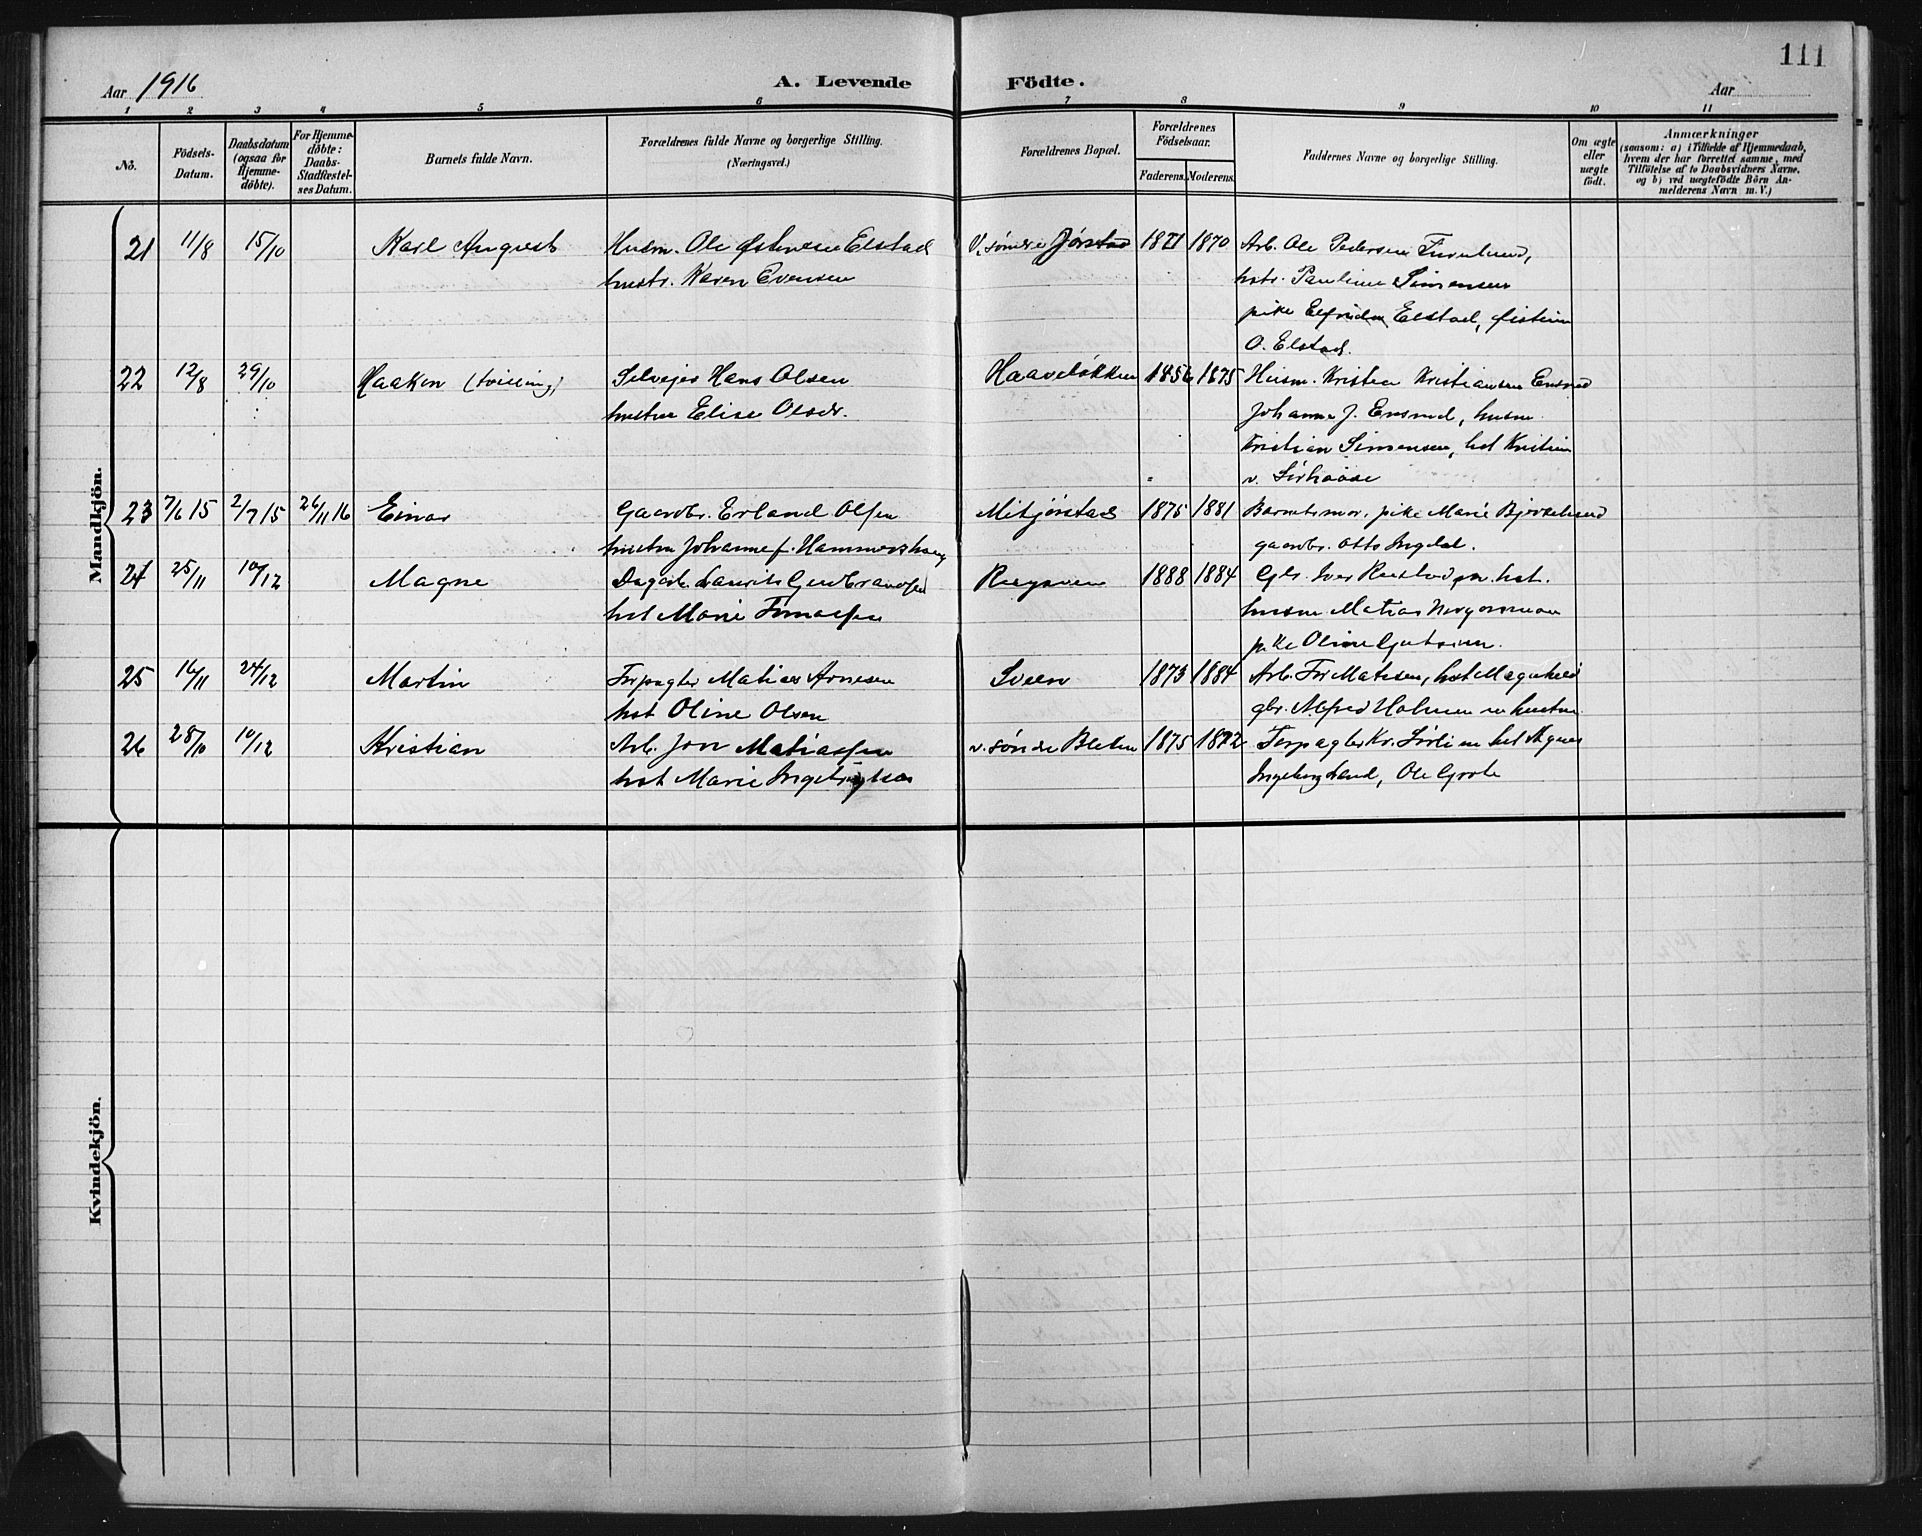 111
Aar 1916
A. Levende Födte.
Aar
1 2 3 4 5 6 7 8 9 10 11
No.
Födsels-Datum.
Daabsdatum (ogsaa for Hjemmedöbte).
For Hjemmedöbte: Daabs-Stadfæstelses Datum.
Barnets fulde Navn.
Forældrenes fulde Navne og borgerlige Stilling.
(Næringsvei.)
Forældrenes Bopæl.
Forældrenes Födselsaar.
Faderens. Moderens.
Faddernes Navne og borgerlige Stilling.
Om ægte eller uægte födt.
Anmærkninger
(saasom: a) i Tilfælde af Hjemmedaab,
hvem der har forrettet samme, med
Tilföielse af to Daabsvidners Navne,
og b) ved uægtefödte Börn An-
melderens Navn m. V.)
Mandkjön.
21 11/8 15/10 Karl August Husm. Ole Østensen Elstad V. søndre Jørstad 1871 1870 Arb. Ole Pedersen Furulund,
hustr. Karen Evensen hstr. Pauline Simensen
pike Elfrida Elstad, Øistein
O. Elstad.
22 12/8 29/10 Haakon (tvilling) Selveier Hans Olsen Haaveløkken 1856 1875 Husm. Kristen Kristiansen Ensrud
hustru Elise Olsdr. Johanne J. Ensrud, husm
Kristian Simensen, hst Kristine
v.
23 7/6 15 2/7 15 26/11 16 Einar Gaardbr. Erland Olsen Mitjørstad 1875 1881 Barnets mor, pike Marie Bjørkelund
hustru Johanne f. Hammershaug gaardbr. Otto Ingdal.
24 25/11 10/12 Magne Dagarb. Laurits Gudbrandsen 1888 1884 Gbr. Iver hst.
hst Marie Tomassen husm. Matias
pike Oline
25 16/11 24/12 Martin Forpagter Matias Arnesen Sveen 1873 1884 Arb. Matisen, hst Magnhild
hst Oline Olsen gbr. Alfred Holmen m hustru
26 28/10 10/12 Kristian Arb. Jon Matiassen v. søndre 1875 1872 Forpagter Kr. Sørlien hst Agnes
hst Marie Ingebrigtsen Ingeborg Lund, Ole
Kvindekjön.